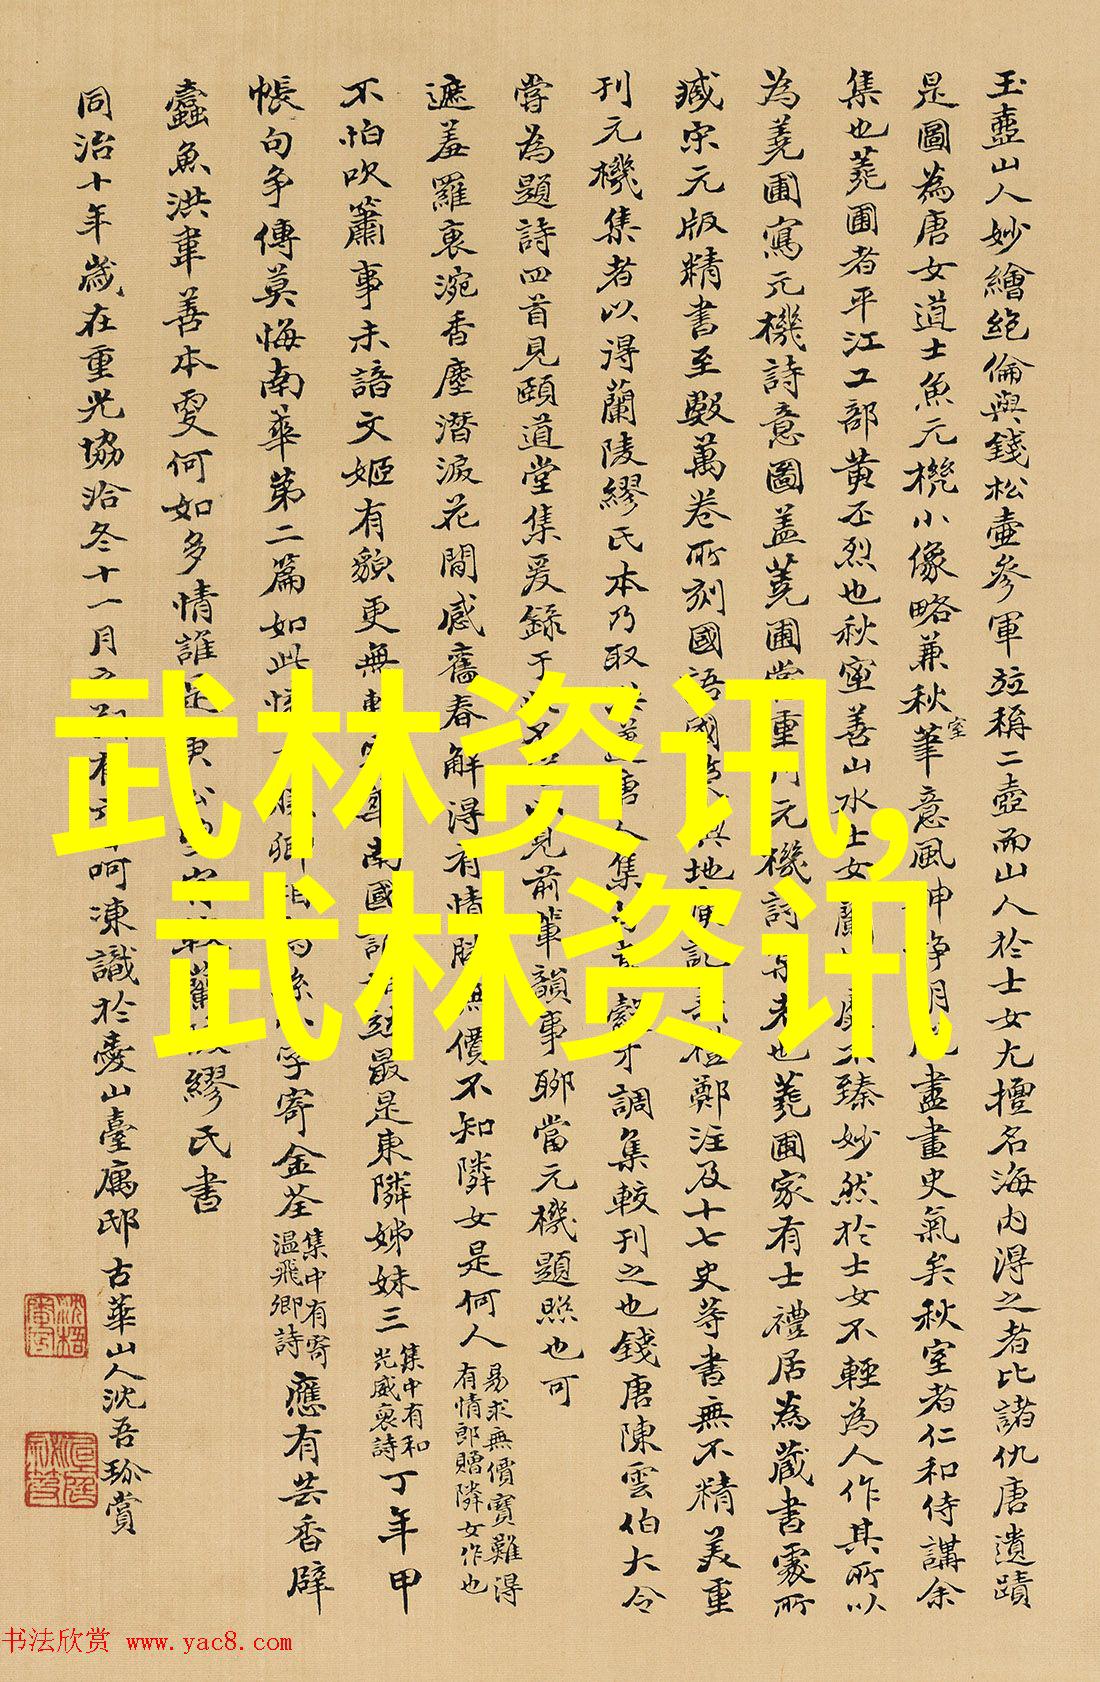 玉壺山人妙繪絕倫與錢松壺參軍並稱二壺而山人於士女尤擅名海內得之者比諸仇唐遺蹟
是圖為唐女道士魚元機小像略兼秋室筆意風神靜朗盡畫史氣矣秋室者仁和侍講余
集也蕘圃者平江工部黃丕烈也秋室善山水士女蘭臻妙然於士女不輕為人作其所以
為蕘圃寫元機詩意圖蓋蕘圃嘗重刊元機詩也蕘圃家有士禮居為藏書處所
臧宋元版精書至數萬卷所刻國語國地記鄭注及十七史等書無不精美重
刊元機集者以得蘭陵繆氏本乃取唐人集才調集較刊之也錢唐陳雲伯大令
嘗為題詩四首見頤道堂集爰錄于見前輩韻事聊當元機題照也可
遮羞羅裏涴香塵潛淚花間感舊春解得有情無價不知隣女是何人易求無價寶難得有情郎贈隣女作也
不怕吹簫事未諳文姬有貌更無南國最是東隣姊妹三集中有和光威裒詩丁年甲
帳句爭傳莫悔南華第二篇如此字寄金荃集中有寄溫飛卿詩應有芸香辟
蠹魚洪韋善本更何如多情誰繆氏書
同治十年歲在重光協洽冬十一月有呵凍識於臺山臺寓邸古華山人沈吾珍賞
武林资讯,
武林资讯
书法欣赏 www.yac8.com